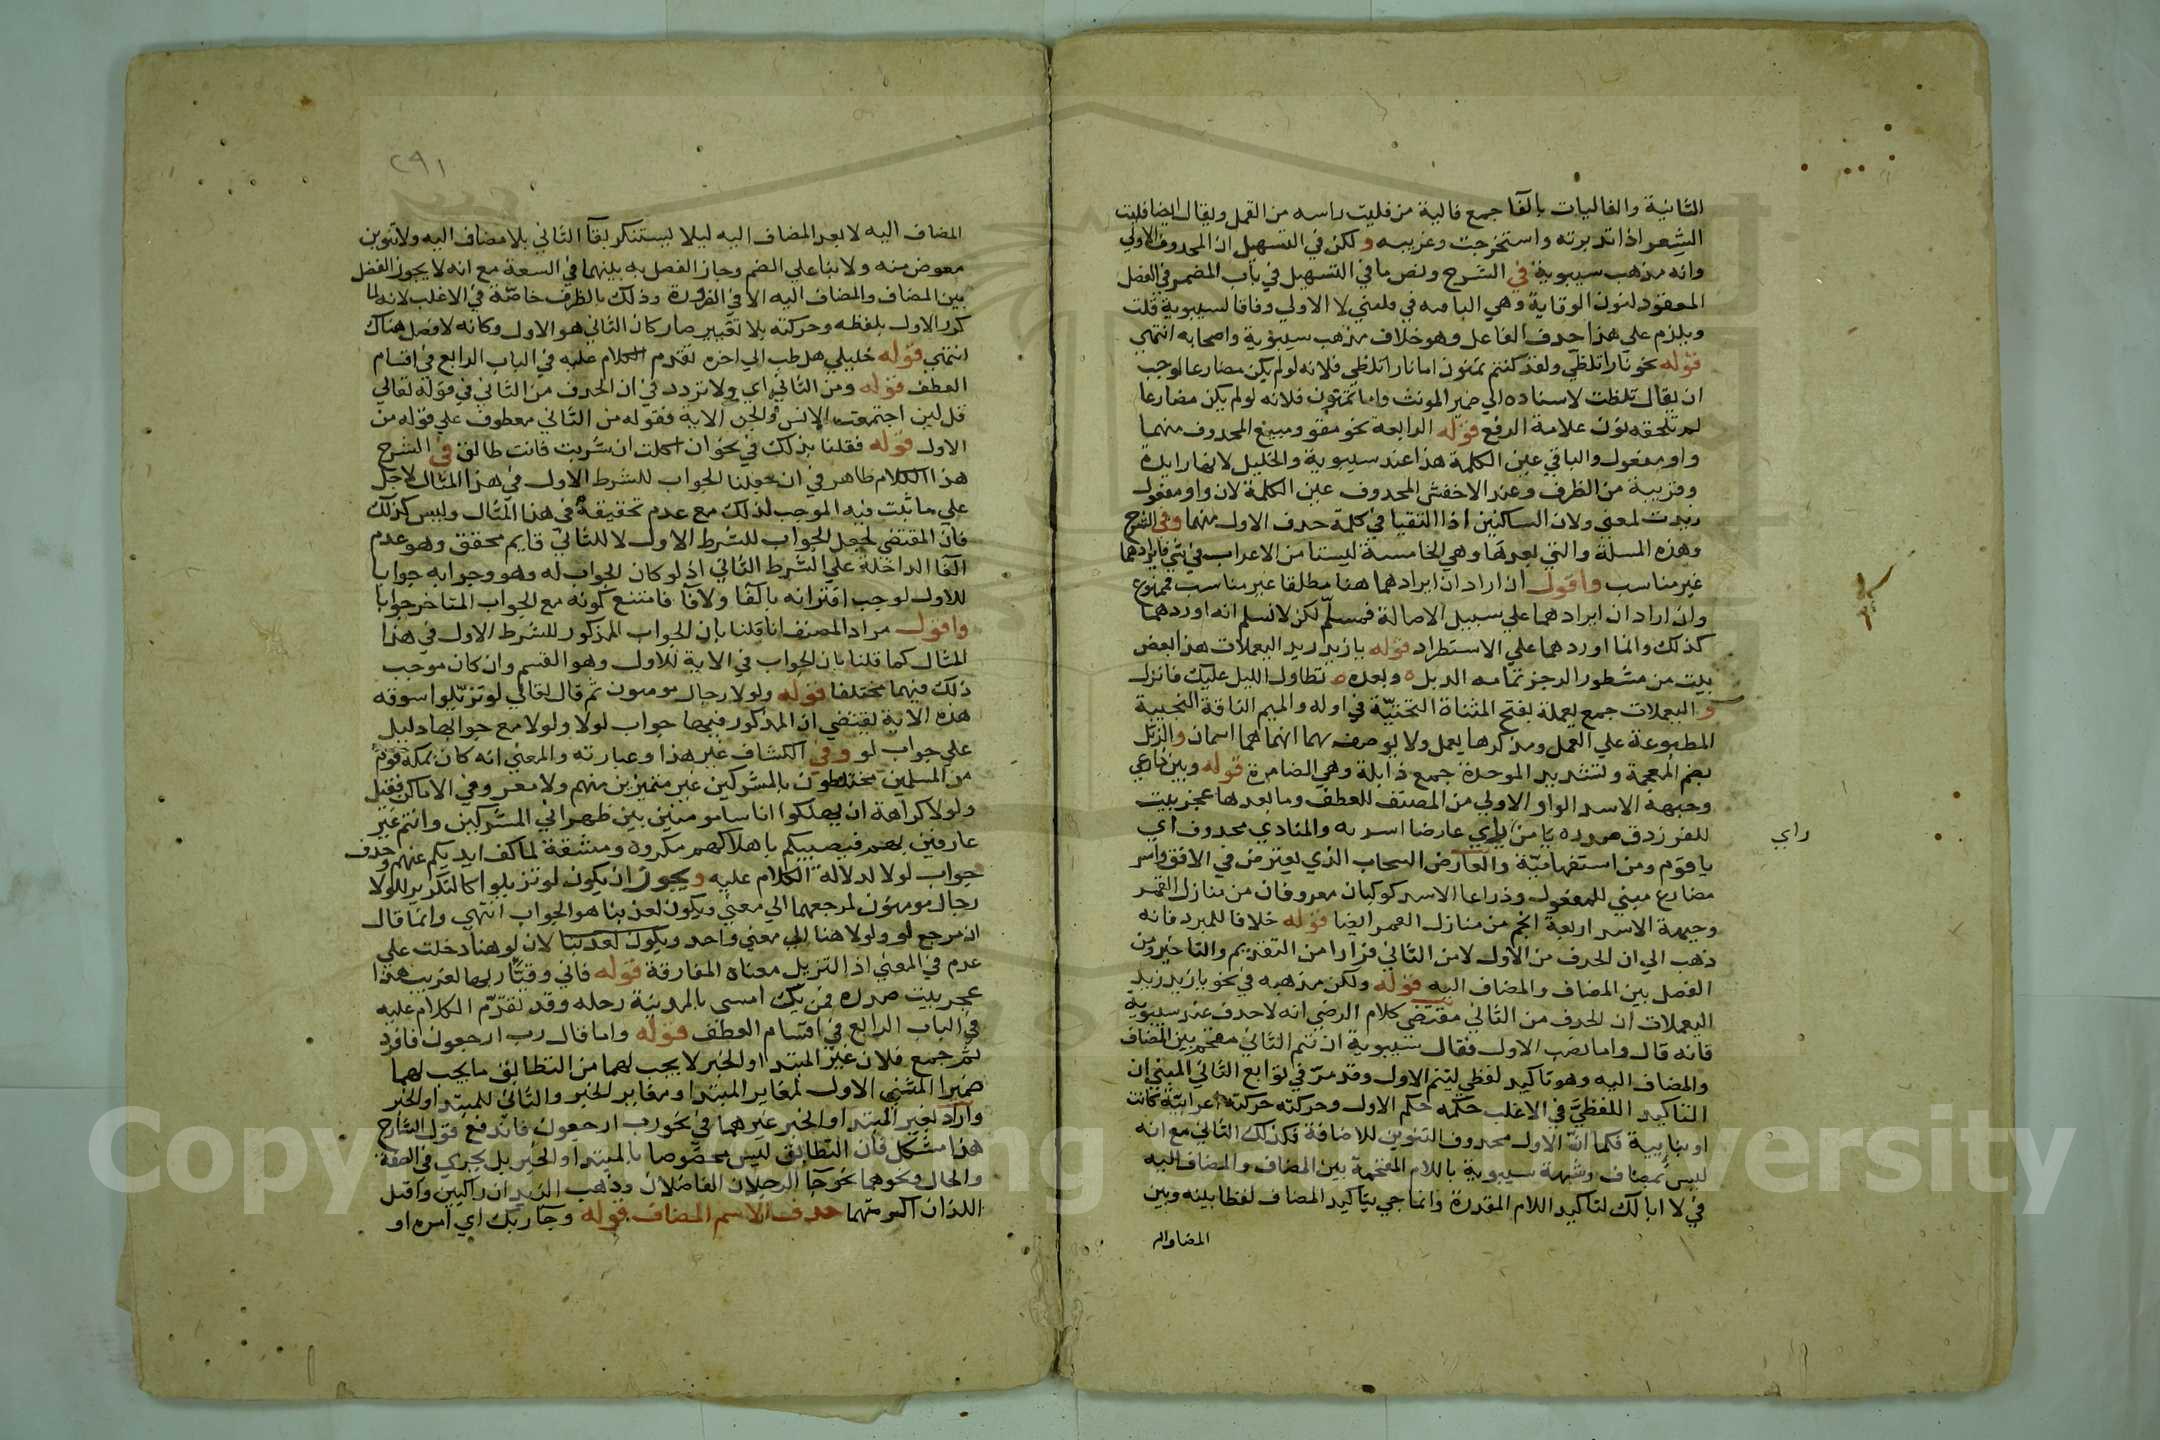 الثانية والفاليات بالفا جمع فالية من فليت راسه من القمل ويقال ايضا فليت
الشعر اذا تدبرته واستخرجت وغريبه ولكن في التسهيل ان المحدوف الاولي
وانه مذهب سيبوية في الشرح ونص ما في التسهيل في باب المضمر في الفصل
المعقود لنون الوقاية وهي الباقيه في فليني لا الاولي وفاقا لسيبوية قلت
ويلزم علي هذا حدف الفاعل وهو خلاف مذهب سيبوية واصحابه انتهي
قوله نحو نارا تلظي ولقد كنتم تمنون اما نارا تلظي فلانه لو لم يكن مضارعا لوجب
ان يقال تلظت لاسناده الي ضمير المونث واما تمنون فلانه لو لم يكن مضارعا
لم تلحقه نون علامة الرفع قوله الرابعة نحو مقو ومبيع المحدوف منهما
واو مفعول والباقي عين الكلمة هذا عند سيبوية والخليل لانها زايدة
وقريبة من الظرف وعند الاخفش المحدوف عين الكلمة لان واو مفعول
زيدت لمعني ولان الساكنين اذا التقيا في كلمة حدف الاول منهما وفي الشرح
وهذه المسلة والتي بعدها وهي الخامسة ليستا من الاعراب في شي فايرادهما
غير مناسب واقول ان اراد ان ايرادهما هنا مطلقا غير مناسب فممنوع
وان اراد ان ايرادهما علي سبيل الاصالة فمسلم لكن لا نسلم انه اوردهما
كذلك وانما اوردهما علي الاستطراد قوله يا زيد زيد اليعملات هذا بعض
بيت من مشطور الرجز تمامه الذبل وبعده تطاول الليل عليك فانزل
و اليعملات جمع يعملة بفتح المثناة التحتية في اوله والميم الناقة النجيبة
المطبوعة علي العمل ومذكرها يعمل ولا يوصف بهما انما هما اسمان والذبل
بضم المعجمة وتشديد الموحدة جمع ذابلة وهي الضامرة قوله وبين ذراعي
وجبهة الاسد الواو الاولي من المصنف للعطف وما بعدها عجز بيت
للفرزدق صدره يا من راي عارضا اسر به والمنادي محدوف اي
راي
يا قوم ومن استفهامية والعارض السحاب الذي يعترض في الافق واسر
مضارع مبني للمفعول وذراعا الاسد كوكبان معروفان من منازل القمر
وجبهة الاسد اربعة انجم من منازل القمر ايضا قوله خلافا للمبرد فانه
ذهب الي ان الحدف من الاول لا من الثاني فرارا من التقديم والتاخير ومن
الفصل بين المضاف والمضاف اليه قوله ولكن مذهبه في نحو يا زيد زيد
اليعملات ان الحدف من الثاني مقتضي كلام الرضي انه لا حدف عند سيبوية
فانه قال واما نصب الاول فقال سيبوية ان تيم الثاني مقحم بين المضاف
والمضاف اليه وهو تاكيد لفظي لتيم الاول وقد مر في توابع الثاني المبني ان
التاكيد اللفظي في الاغلب حكمه حكم الاول وحركته حركته اعرابية كانت
او بنايية فكما ان الاول محدوف التنوين للاضافة فكذلك الثاني مع انه
ليس بمضاف وشبهه سيبوية باللام المقحمة بين المضاف والمضاف اليه
في لا ابا لك لتاكيد اللام المقدرة وانما جي بتاكيد المضاف لفظا بينه وبين
المضاف اليه
٢٩١
المضاف اليه لا بعد المضاف اليه ليلا يستنكر بقا الثاني بلا مضاف اليه ولا تنوين
معوض منه ولا بنا علي الضم وجاز الفصل به بينهما في السعة مع انه لا يجوز الفصل
بين المضاف والمضاف اليه الا في الضرورة وذلك بالظرف خاصة في الاغلب لانه لما
كرر الاول بلفظه وحركته بلا تغيير صار كان الثاني هو الاول وكانه لا فصل هناك
انتهي قوله خليلي هل طب الي اخره تقدم الكلام عليه في الباب الرابع في اقسام
العطف قوله ومن الثاني اي ولا تردد في ان الحدف من الثاني في قوله تعالي
قل لين اجتمعت الانس والجن الاية فقوله من الثاني معطوف علي قوله من
الاول قوله فقلنا بذلك في نحو ان اكلت ان شربت فانت طالق في الشرح
هذا الكلام ظاهر في ان جعلنا الجواب للشرط الاول في هذا المثال لاجل
علي ما ثبت فيه الموجب لذلك مع عدم تحقيقه في هذا المثال وليس كذلك
فان المقتضي لجعل الجواب للشرط الاول لا للثاني قايم محقق وهو عدم
الفا الداخلة علي الشرط الثاني اذ لو كان الجواب له وهو وجوابه جوابا
للاول لوجب اقترانه بالفا ولا فا فامتنع كونه مع الجواب المتاخر جوابا
واقول مراد المصنف انا قلنا بان الجواب المذكور للشرط الاول في هذا
المثال كما قلنا بان الجواب في الاية للاول وهو القسم وان كان موجب
ذلك فيهما مختلفا قوله ولولا رجال مومنون ثم قال تعالي لو تزيلوا سوقه
هذه الاية يقتضي ان المذكور فيها جواب لولا ولولا مع جوابها دليل
علي جواب لو وفي الكشاف غير هذا وعبارته والمعني انه كان بمكة قوم
من المسلمين مختلطون بالمشركين غير متميزين منهم ولا معروفي الاماكن فقيل
ولولا كراهة ان يهلكوا اناسا مومنين بين ظهراني المشركين وانتم غير
عارفين بهم فيصيبكم باهلاكهم مكروه ومشقة لما كف ايديكم عنهم وحدف
جواب لولا لدلالة الكلام عليه ويجوز ان يكون لو تزيلوا كالتكرير للولا
رجال مومنون لمرجعهما الي معني ويكون لعذبنا هو الجواب انتهي وانما قال
ان مرجع لو ولولا هنا الي معني واحد ويكون لعذبنا لان لو هنا دخلت علي
عدم في المعني اذ التزيل معناه المفارقة قوله فاني وقيار بها لغريب هذا
عجز بيت صدره فمن يك امسي بالمدينة رحله وقد تقدم الكلام عليه
في الباب الرابع في اقسام العطف قوله واما قال رب ارجعون فافرد
ثم جمع فلان غير المبتدا والخبر لا يجب لهما من التطابق ما يجب لهما
ضمير المثني الاول لمغاير المبتدا ومغاير الخبر والثاني للمبتدا والخبر
واراد بغير المبتدا والخبر غيرهما في نحو رب ارجعون فاندفع قول الشارح
هذا مشكل فان التطابق ليس مخصوصا بالمبتدا والخبر بل يجري في الصفة
والحال ونحوهما نحو جا الرجلان الفاضلان وذهب الزيدان راكبين واقبل
اللذان اكرمتهما حدف الاسم المضاف قوله وجا ربك اي امره او